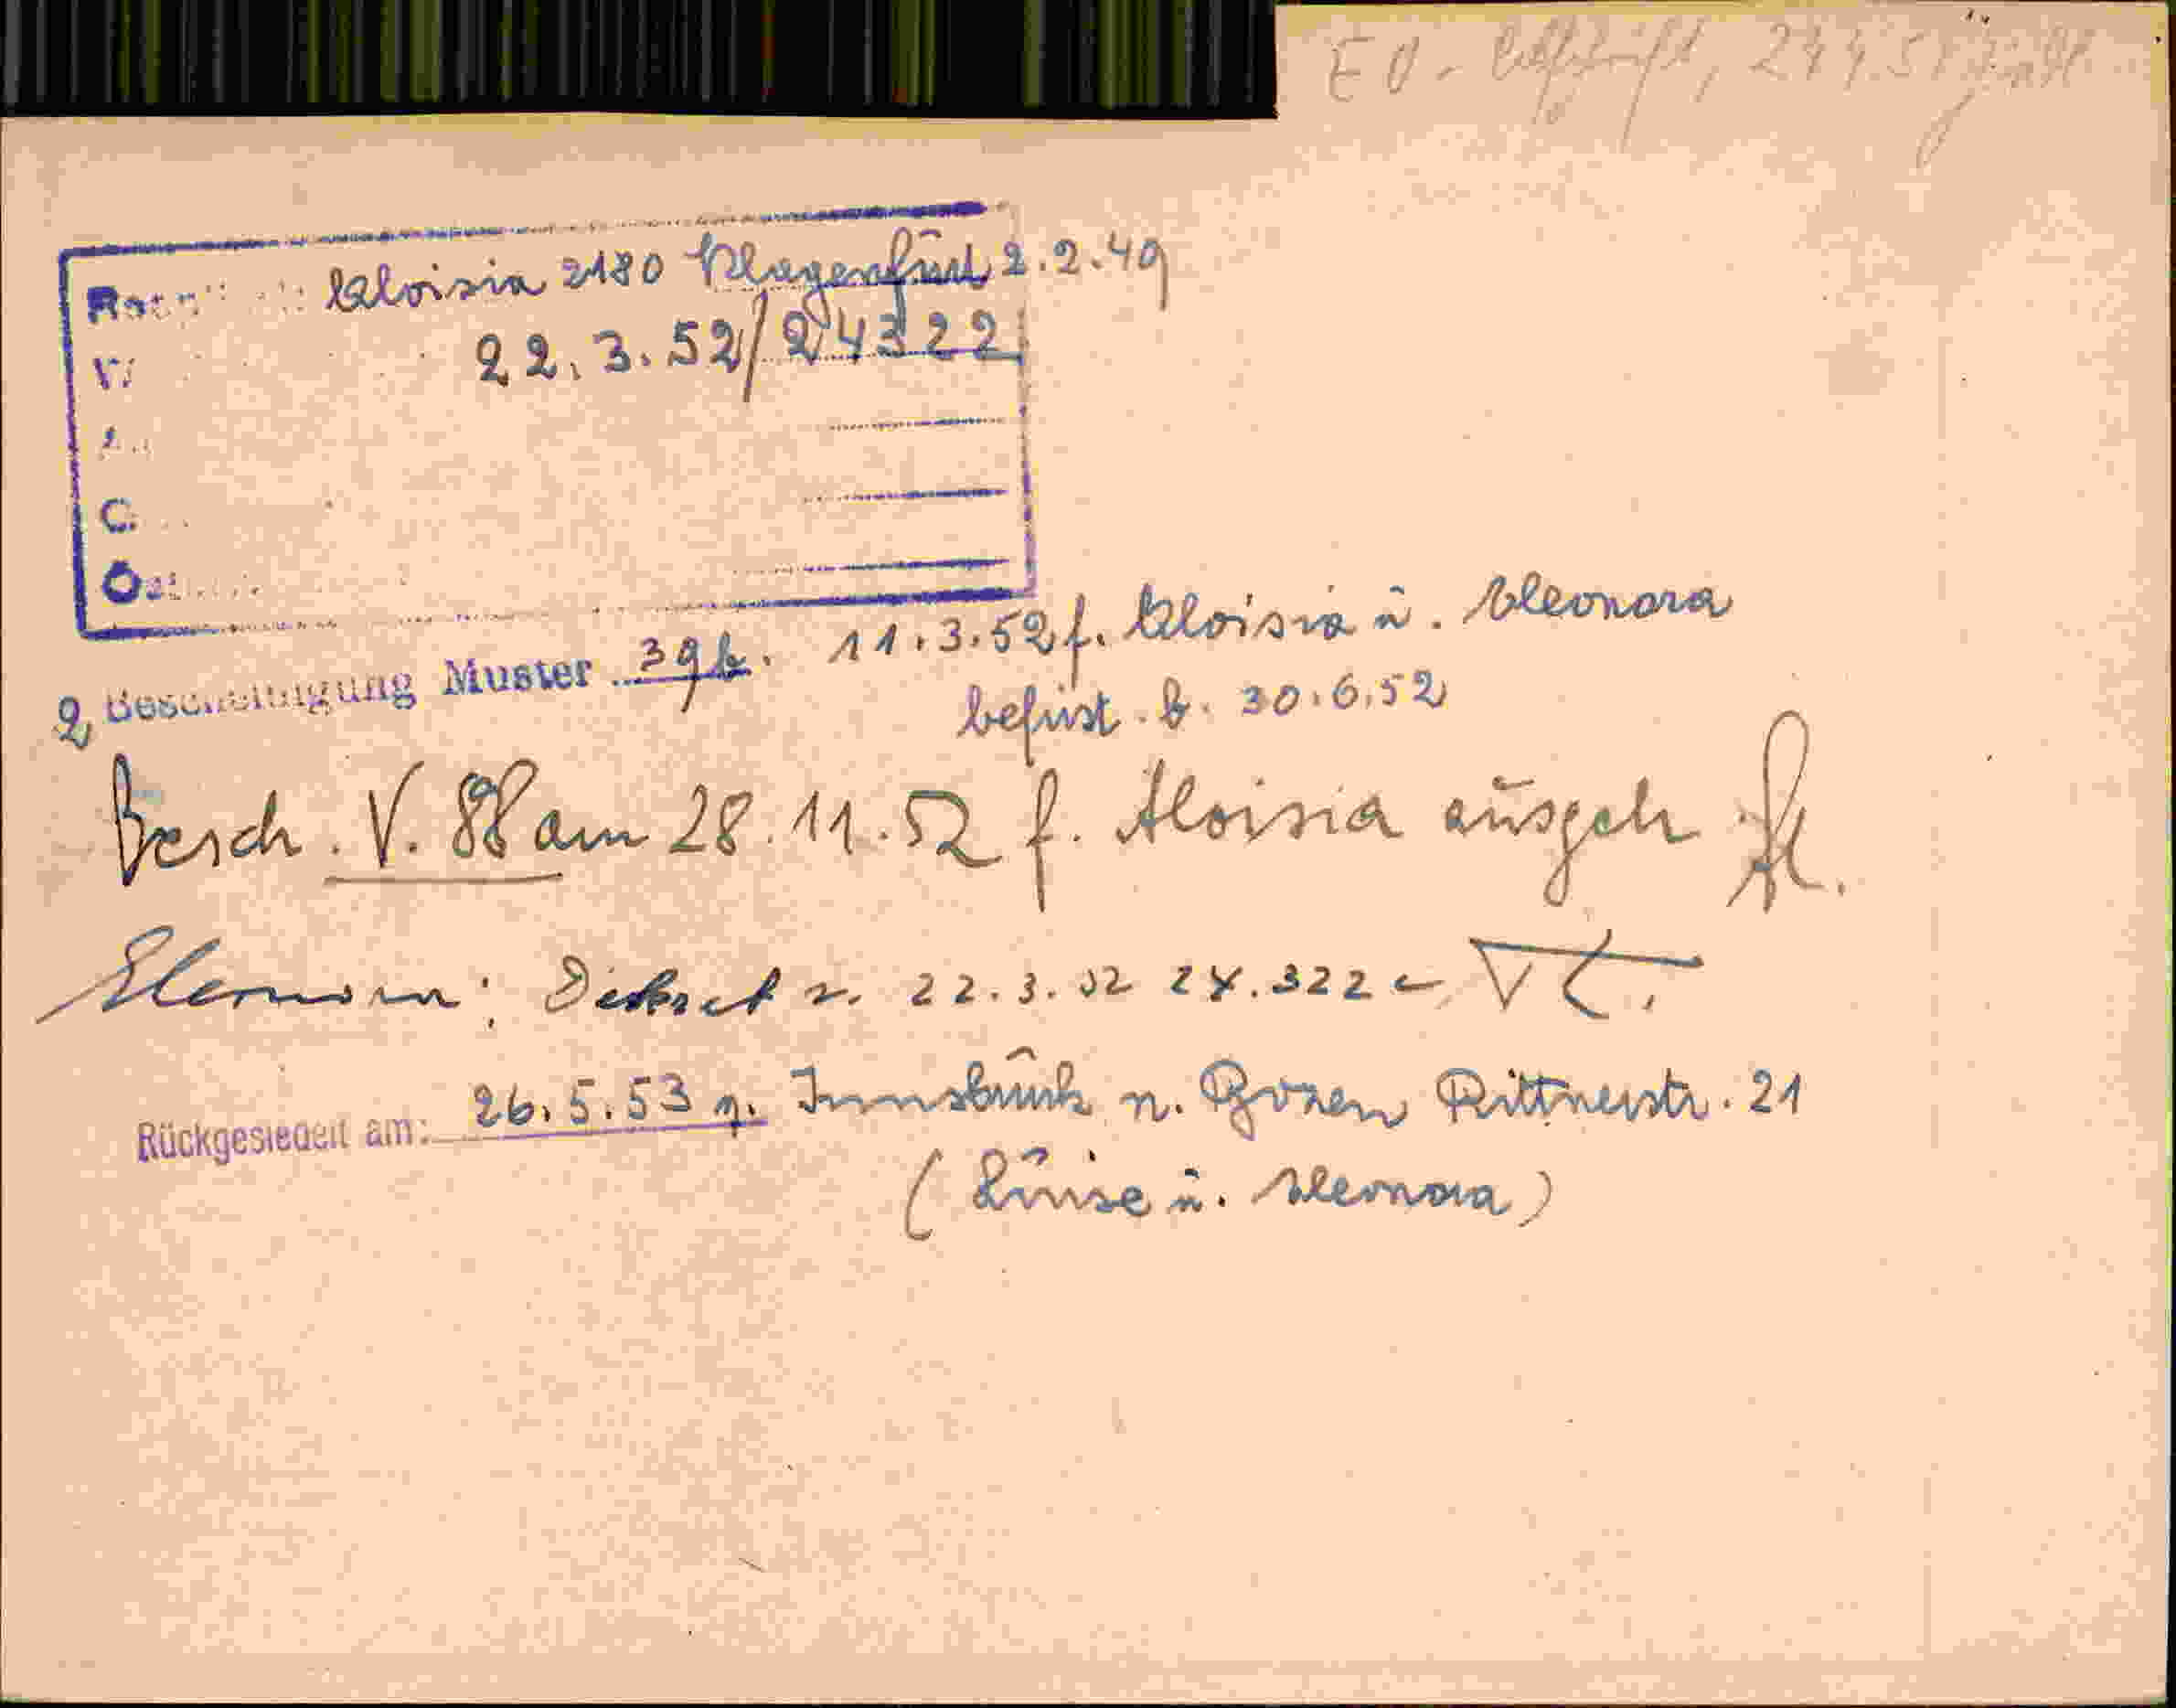 EO-
Aloisia 2180 Klagenfurt 2.2.49
22.3.52/24322
2 Bescheinigung Muster 39b. 11.3.52 f. Aloisia u. Eleonora
befrist. b. 30.6.52
Besch. V. 88 am 28.11.52 f. Aloisia ausgeh
Eleonora: Dekret v. 22.3.52 24.322
Rückgesiedelt am: 26.5.53 v. Innsbruck n. Bozen Rittnerstr. 21
(Luise u. Eleonora)